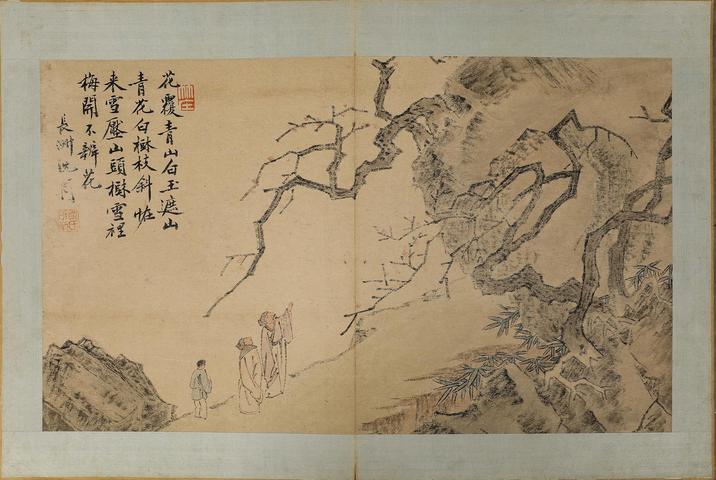 花覆青山白玉遮山
青花白樹枝斜恠
来雪壓山頭樹雪裡
梅開不辨花
長洲沈周